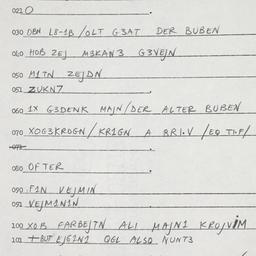 021 O
030 OBN L8-1B /OLT G3AT DER BUBEN
040 HOB ZEJ M3KAN3 G3VEJN
050 M1TN ZEJDN
051 ZUKN7
060 1X G3DENK MAJN/DER ALTER BUBEN
070 XOG3KROGN/KR1GN A BR1.V /EQ TLF/
071
080 OFTER
090 F1N VEJMIN
091 VEJM1N1N
100 XOB FARBEJTN ALI MAJN1 KROJVIM
101 BUT EJG1N1 OGL ALSO NUNT3